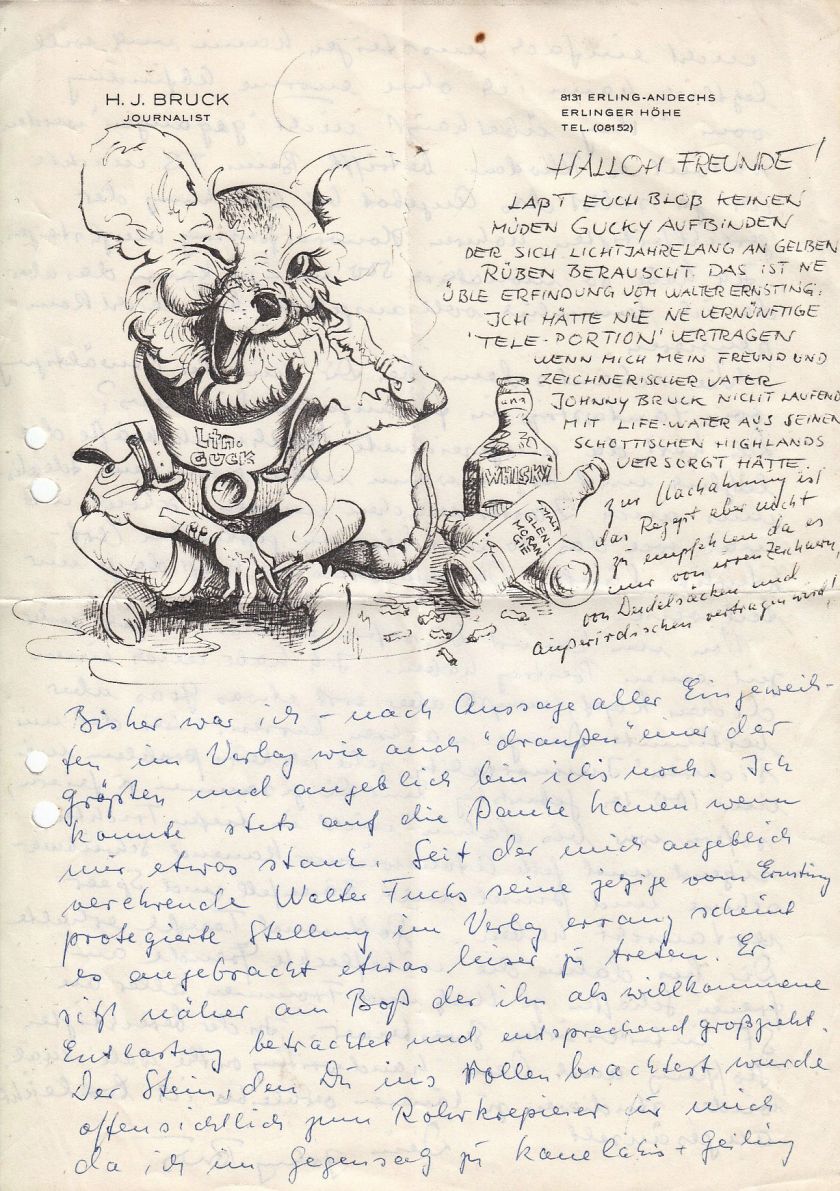 H. J. BRUCK
JOURNALIST
8131 ERLING-ANDECHS
ERLINGER HÖHE
TEL. (08152)
HALLOH FREUNDE!
LAßT EUCH BLOß KEINEN
MÜDEN GUCKY AUFBINDEN
DER SICH LICHTJAHRELANG AN GELBEN
RÜBEN BERAUSCHT. DAS IST NE
ÜBLE ERFINDUNG VOM WALTER ERNSTING.
ICH HÄTTE NIE NE VERNÜNFTIGE
'TELE-PORTION' VERTRAGEN
WENN MICH MEIN FREUND UND
ZEICHNERISCHER VATER
JOHNNY BRUCK NICHT LAUFEND
MIT LIFE-WATER AUS SEINEN
SCHOTTISCHEN HIGHLANDS
VERSORGT HÄTTE.
zur Nachahmung ist
das Rezept aber nicht
zu empfehlen da es
nur von irren Zeichnern,
von Dudelsäcken und
außerirdischen vertragen wird!
Ltn.
GUCK
WHISKY
MALT
GLEN-
MORAN-
GIE
Bisher war ich – nach Aussage aller Eingeweih-
ten im Verlag wie auch "draußen" einer der
größten und angeblich bin ichs noch. Ich
konnte stets auf die Pauke hauen wenn
mir etwas stank. Seit der mich angeblich
verehrende Walter Fuchs seine jezige vom Ernsting
protegierte Stellung im Verlag errang scheint
es angebracht etwas leiser zu treten. Er
sitzt näher am Boß der ihn als willkommene
Entlastung betrachtet und entsprechend großzieht.
Der Stein, den Du ins Rollen brachtest wurde
offensichtlich zum Rohrkrepierer für mich
da ich im Gegensatz zu Kanelakis + Geiling